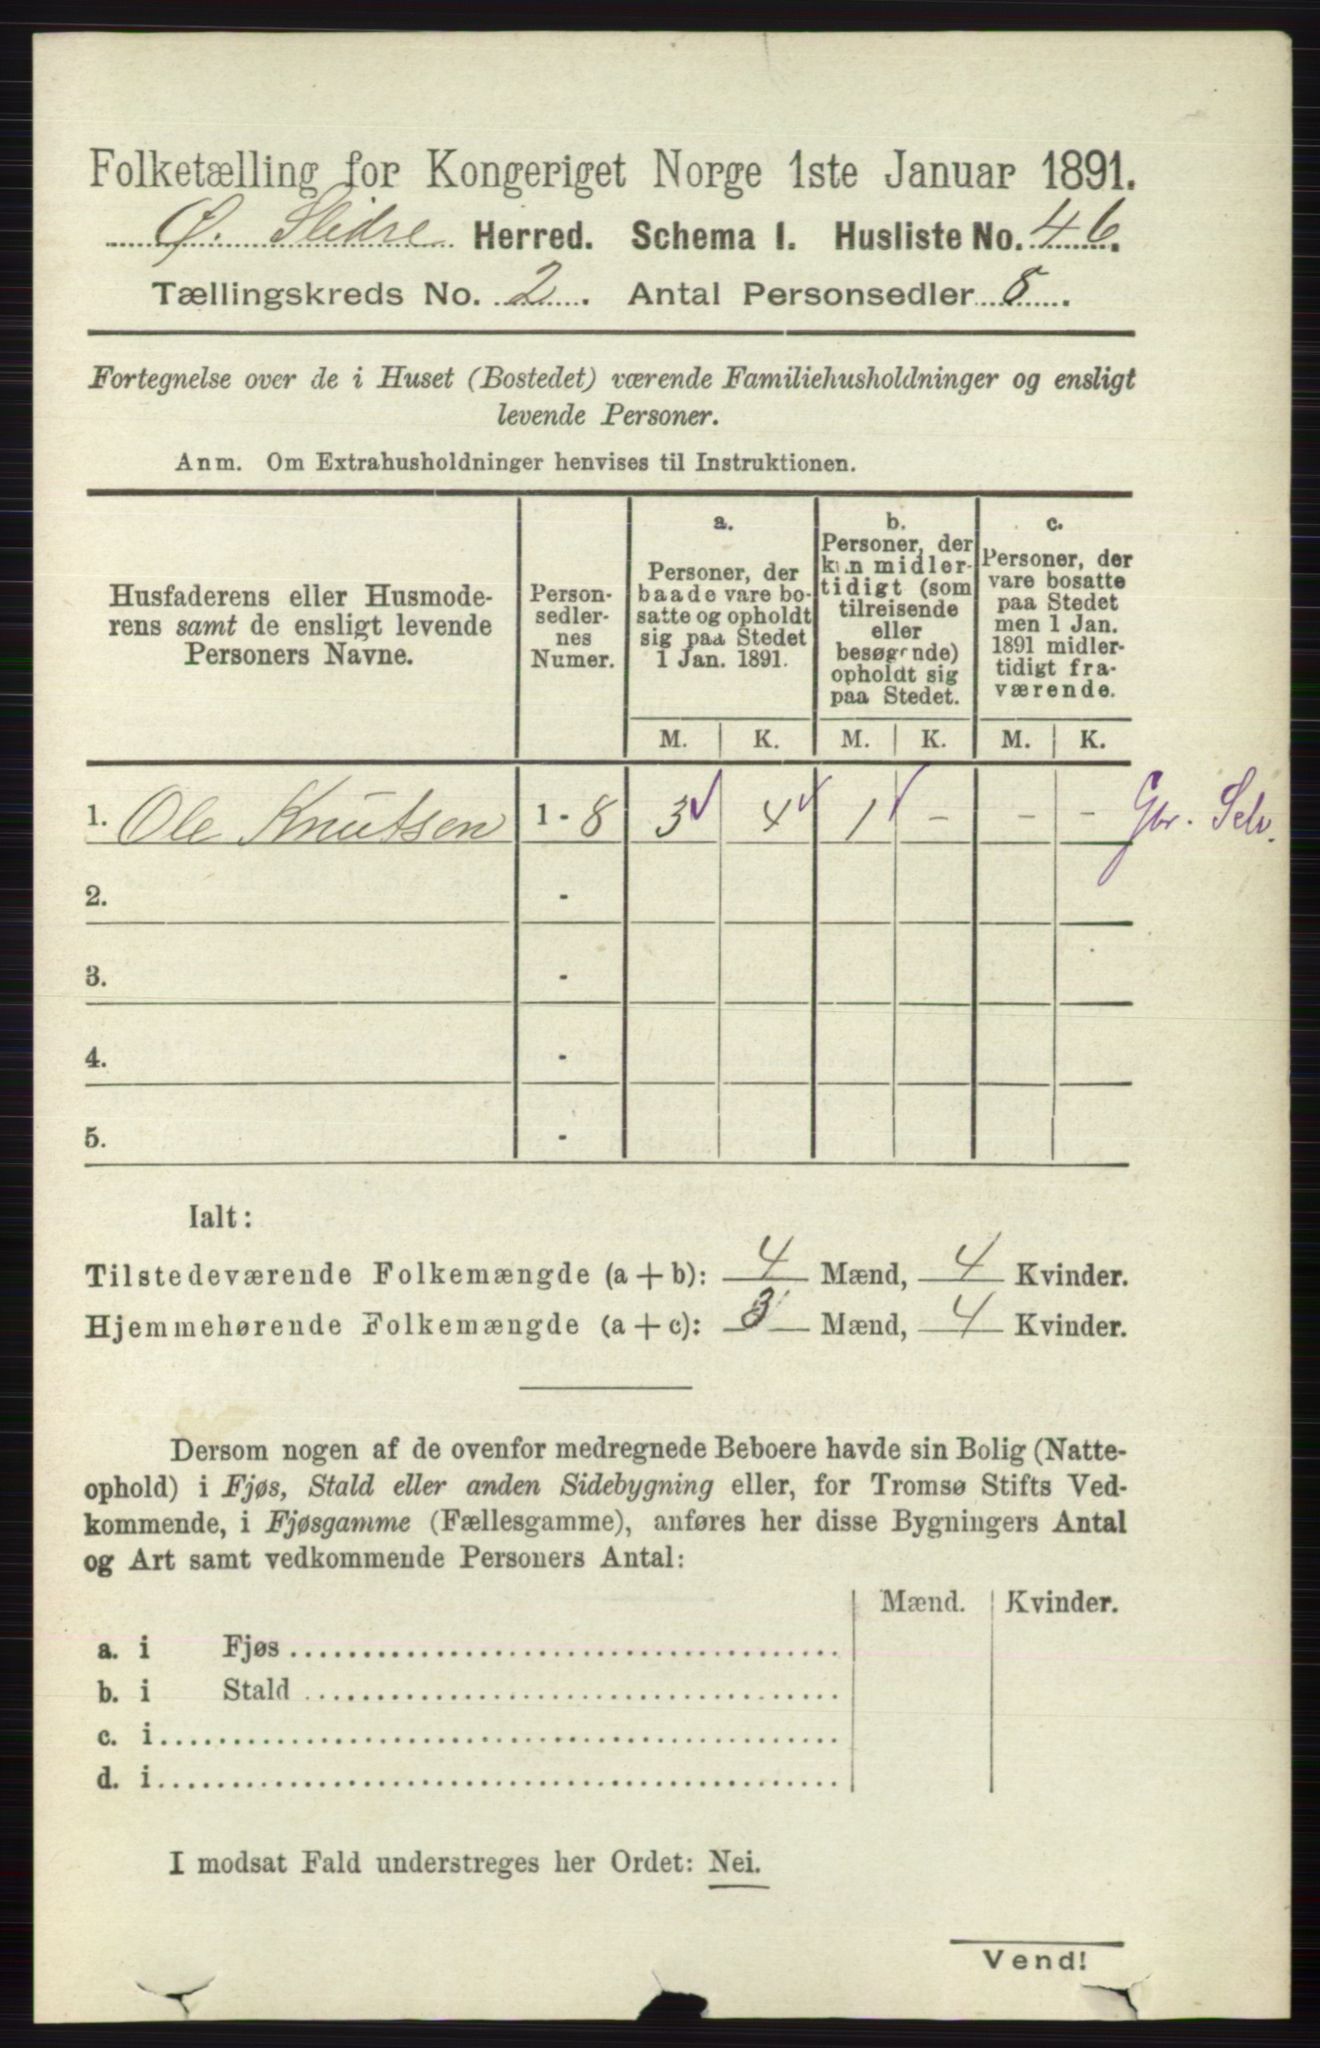 Folketælling for Kongeriget Norge 1ste Januar 1891.
Ø. Slidre Herred. Schema I. Husliste No. 46.
Tællingskreds No. 2. Antal Personsedler 8.
Fortegnelse over de i Huset (Bostedet) værende Familiehusholdninger og ensligt
levende Personer.
Anm. Om Extrahusholdninger henvises til Instruktionen.
Husfaderens eller Husmode-
rens samt de ensligt levende
Personers Navne.
Person-
sedler-
nes
Numer.
a.
Personer, der
baade vare bo-
satte og opholdt
sig paa Stedet
1 Jan. 1891.
b.
Personer, der
kun midler-
tidigt (som
tilreisende
eller
besøgende)
opholdt sig
paa Stedet.
c.
Personer, der
vare bosatte
paa Stedet
men 1 Jan.
1891 midler-
tidigt fra-
værende.
M. K. M. K. M. K.
1. Ole Knutsen 1 - 8 3 4 1 - - - Gbr. Selv.
2. -
3. -
4. -
5. -
Ialt:
Tilstedeværende Folkemængde (a + b): 4 Mænd, 4 Kvinder.
Hjemmehørende Folkemængde (a + c): 3 Mænd, 4 Kvinder.
Dersom nogen af de ovenfor medregnede Beboere havde sin Bolig (Natte-
ophold) i Fjøs, Stald eller anden Sidebygning eller, for Tromsø Stifts Ved-
kommende, i Fjøsgamme (Fællesgamme), anføres her disse Bygningers Antal
og Art samt vedkommende Personers Antal:
Mænd. Kvinder.
a. i Fjøs
b. i Stald
c. i
d. i
I modsat Fald understreges her Ordet: Nei.
Vend!